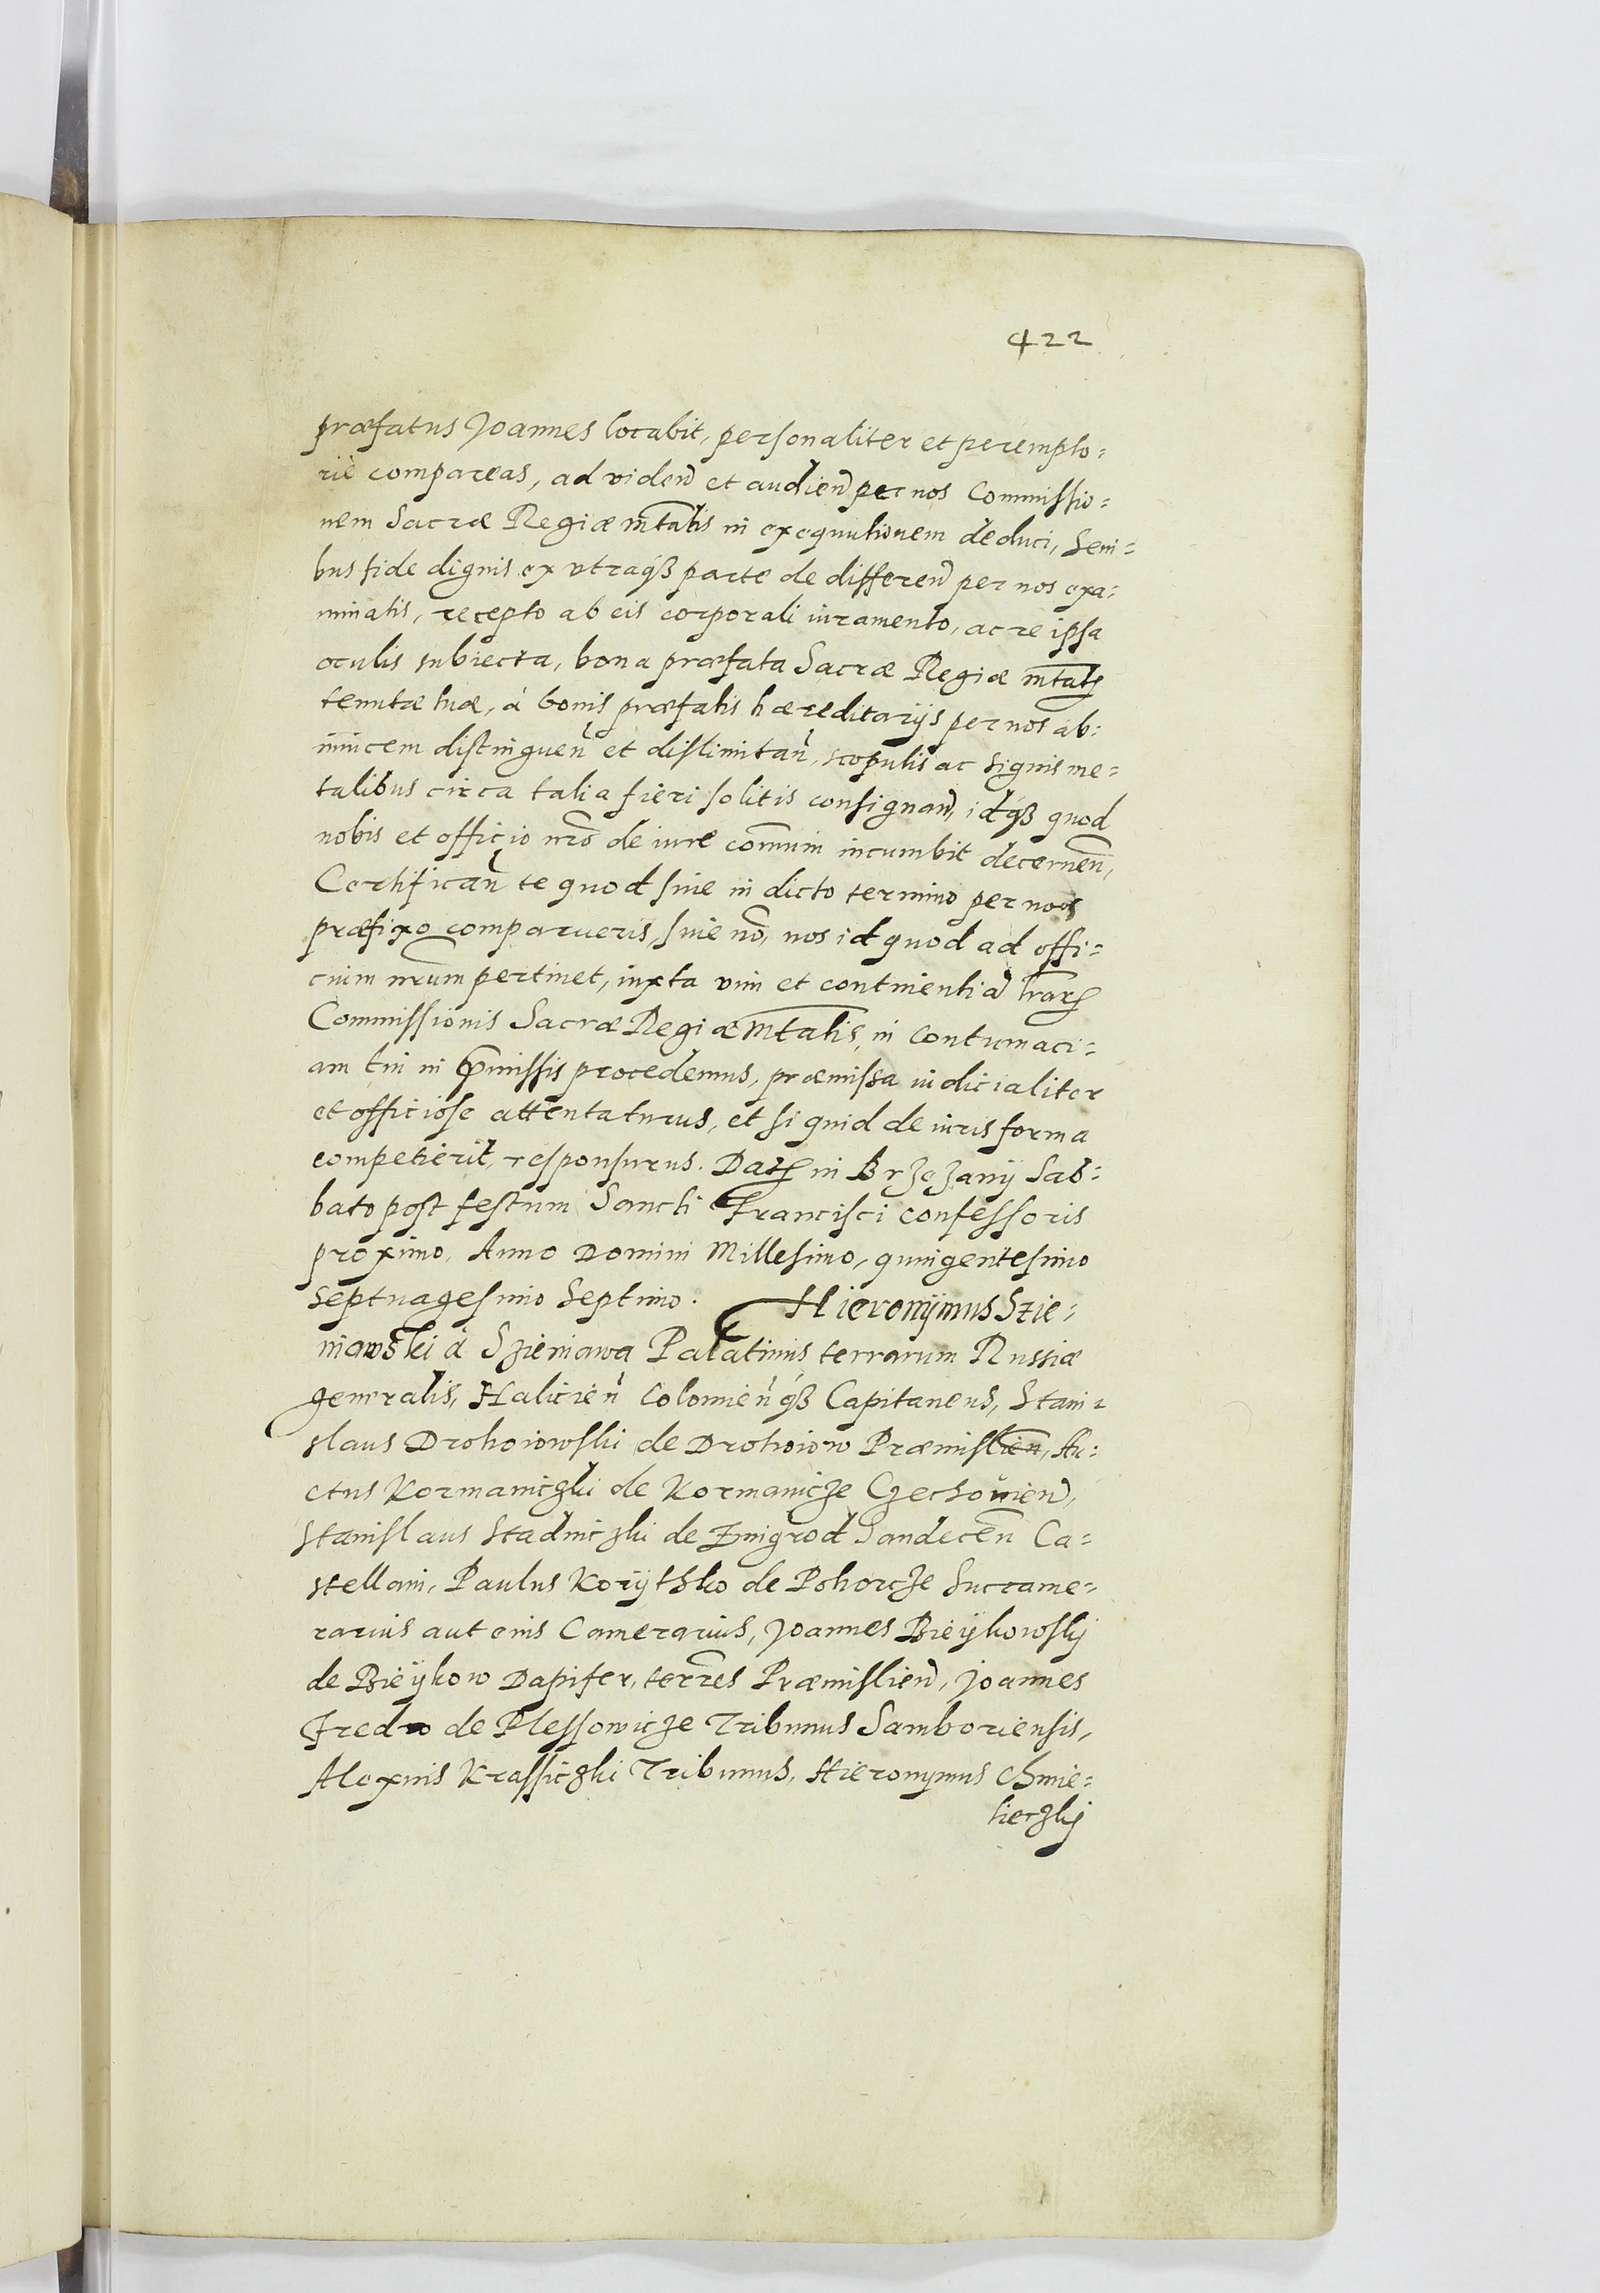 422
præfatus Joannes locabit, personaliter et perempto=
rie compareas, ad viden̄ et audien̄ per nos Commissio=
nem Sacræ Regiæ mtatis in exequutionem deduci, Seni=
bus fide dignis ex utraq́ꝫ parte de differen̄ per nos exa=
minatis, recepto ab eis corporali iuramento, ac re ipsa
oculis subiecta, bona præfata Sacræ Regiæ mtatis
tenutæ tuæ, à bonis præfatis hæreditarijs per nos ab=
inuicem distinguen̄ et dislimitan̄, scopulis ac signis me=
talibus circa talia fieri solitis consignan̄, idq́ꝫ quod
nobis et officio nr̄o de iure com̄uni incumbit decernen̄,
Certifican̄ te quod siue in dicto termino per nos
præfixo comparueris, siue nō, nos id quod ad offi=
cium nr̄um pertinet, iuxta vim et continentiā lrarꝝ
Commissionis Sacræ Regiæ Mtatis, in contumaci=
am tui in p̄missis procedemus, præmissa iudicialiter
et officiose attentaturus, et si quid de iuris forma
competierit, responsurus. Datꝝ in Brzezanÿ Sab=
bato post festum Sancti Francisci confessoris
proximo, Anno Domini Millesimo, quingentesimo
septuagesimo septimo. Hieronÿmus Szie=
niawski à Szieniawa Palatinus terrarum Russiæ
generalis, Halicien̄ Colomien̄q́ꝫ Capitaneus, Stani=
slaus Drohoiowski de Drohoiow Præmislien̄, An=
ctus Kormaniczki de Kormanicze Czechouien̄,
Stanislaus Stadniczki de Zmigrod Sandecen̄ Ca=
stellani, Paulus Korÿthko de Pohorcze Succame=
rarius aut eius Camerarius, Joannes Bieÿkowskÿ
de Bieÿkow Dapifer, terr̄es Præmislien̄, Joannes
Fredro de Plessowicze Tribunus Samboriensis,
Alexius Krassiczki Tribunus, Hieronymus Chmie=
lieczkÿ